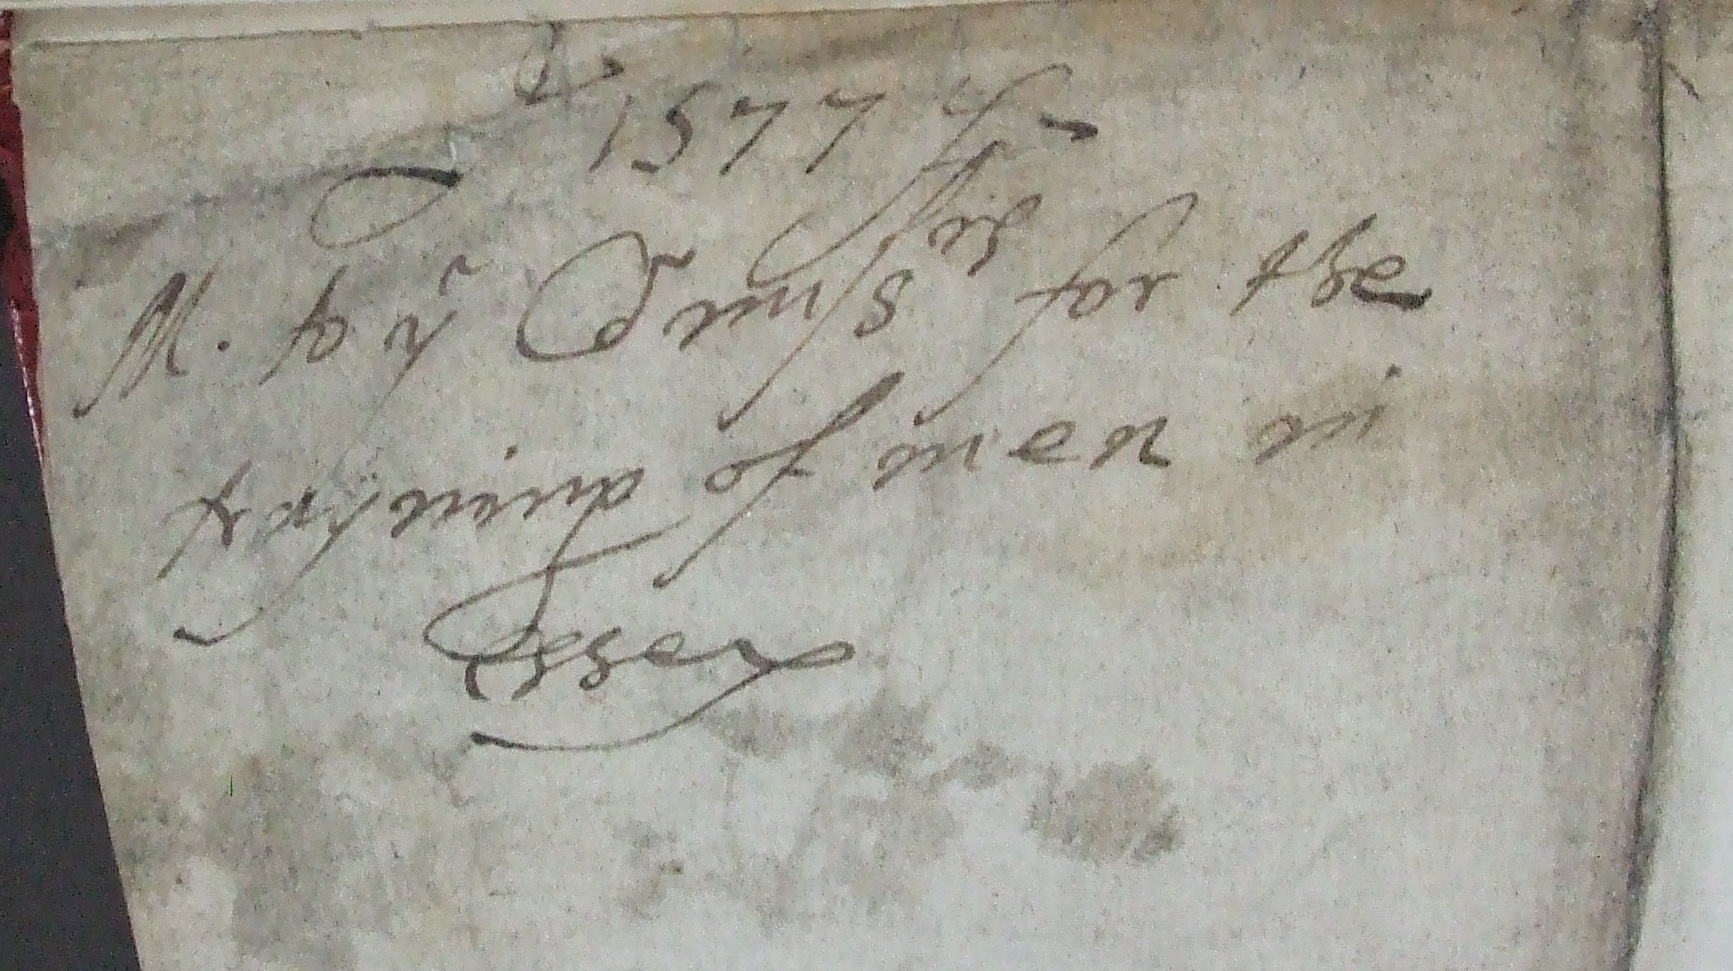 1577
M. to yͤ Com̄iss
ers for the
trayning of men in
Essex